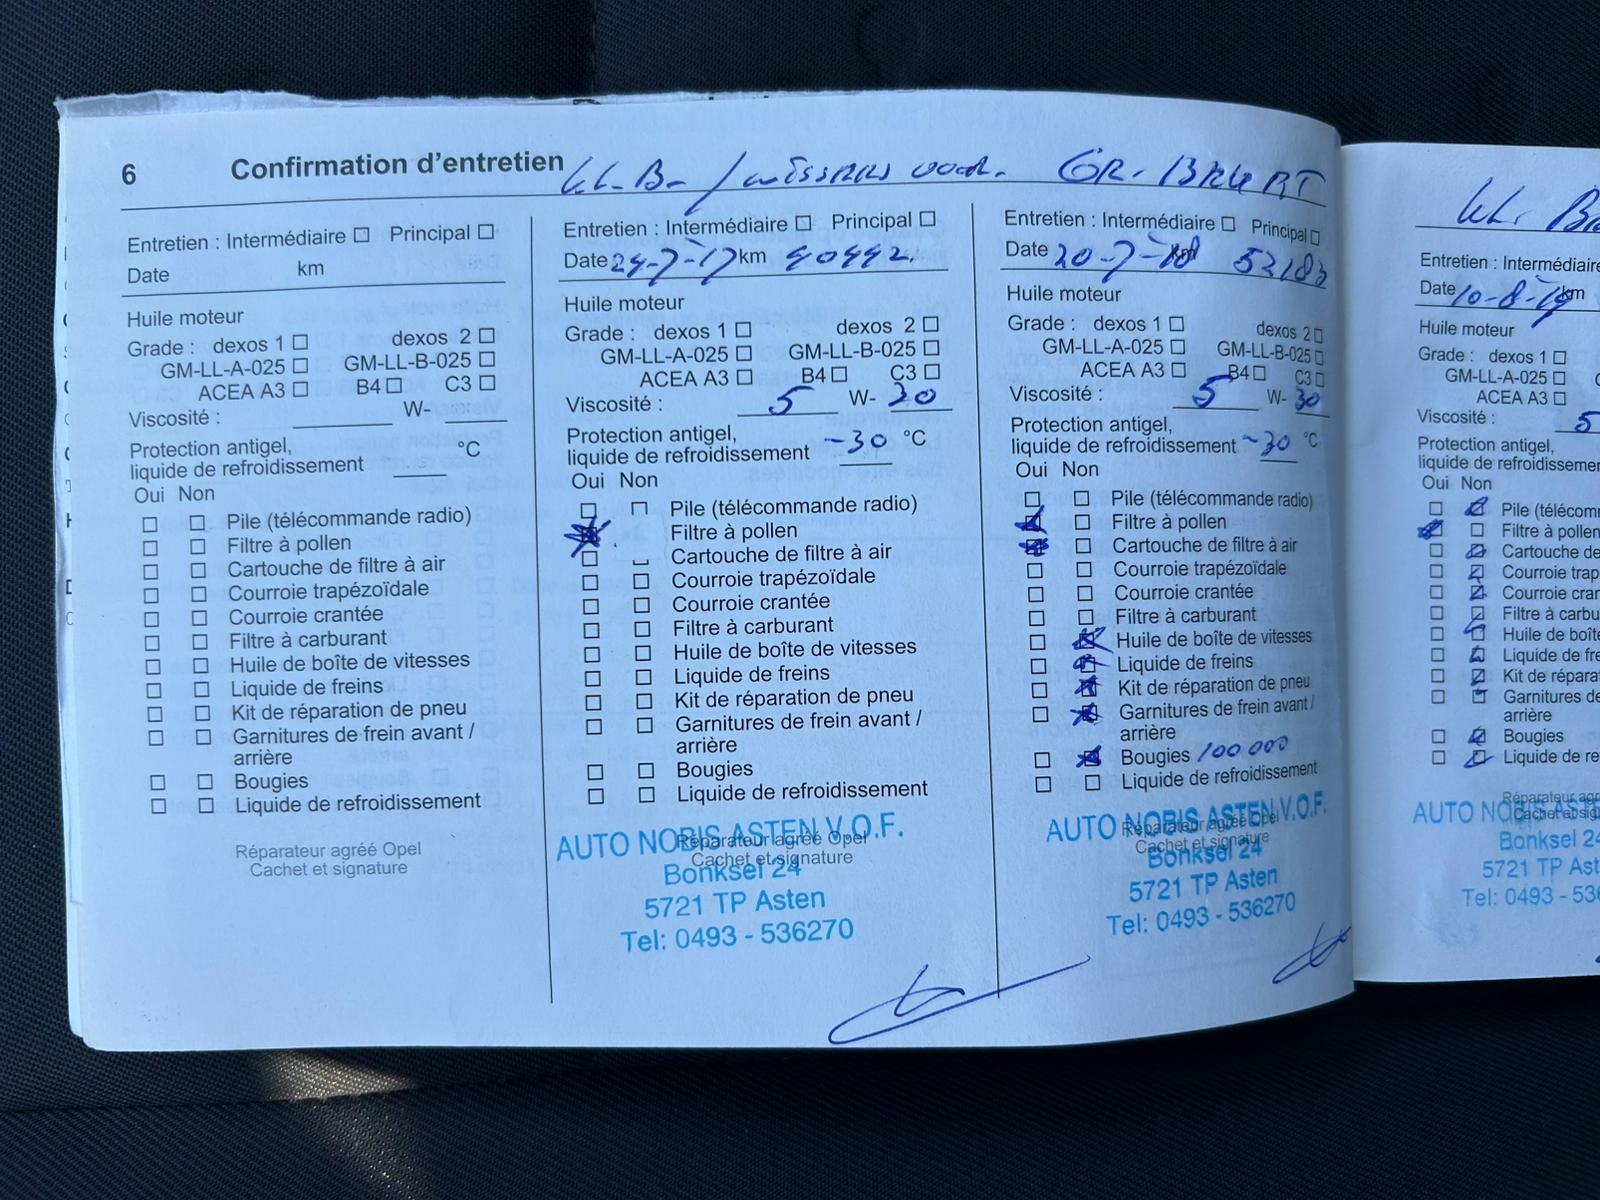 6 Confirmation d'entretien
Kl. B. / wissers voor. GR. BEURT
Entretien : Intermédiaire ☐ Principal ☐
Date km
Huile moteur
Grade : dexos 1 ☐ dexos 2 ☐
GM-LL-A-025 ☐ GM-LL-B-025 ☐
ACEA A3 ☐ B4 ☐ C3 ☐
Viscosité : W-
Protection antigel,
liquide de refroidissement °C
Oui Non
Pile (télécommande radio)
Filtre à pollen
Cartouche de filtre à air
Courroie trapézoïdale
Courroie crantée
Filtre à carburant
Huile de boîte de vitesses
Liquide de freins
Kit de réparation de pneu
Garnitures de frein avant /
arrière
Bougies
Liquide de refroidissement
Réparateur agréé Opel
Cachet et signature
Entretien : Intermédiaire ☐ Principal ☐
Date 24-7-17 km 40442.
Huile moteur
Grade : dexos 1 ☐ dexos 2 ☐
GM-LL-A-025 ☐ GM-LL-B-025 ☐
ACEA A3 ☐ B4 ☐ C3 ☐
Viscosité : 5 W- 30
Protection antigel,
liquide de refroidissement -30 °C
Oui Non
Pile (télécommande radio)
Filtre à pollen
Cartouche de filtre à air
Courroie trapézoïdale
Courroie crantée
Filtre à carburant
Huile de boîte de vitesses
Liquide de freins
Kit de réparation de pneu
Garnitures de frein avant /
arrière
Bougies
Liquide de refroidissement
AUTO NOBIS ASTEN V.O.F.
Réparateur agréé Opel
Cachet et signature
Bonksel 24
5721 TP Asten
Tel: 0493 - 536270
Entretien : Intermédiaire ☐ Principal ☐
Date 20-7-18 km 52183
Huile moteur
Grade : dexos 1 ☐ dexos 2 ☐
GM-LL-A-025 ☐ GM-LL-B-025 ☐
ACEA A3 ☐ B4 ☐ C3 ☐
Viscosité : 5 W- 30
Protection antigel,
liquide de refroidissement -30 °C
Oui Non
Pile (télécommande radio)
Filtre à pollen
Cartouche de filtre à air
Courroie trapézoïdale
Courroie crantée
Filtre à carburant
Huile de boîte de vitesses
Liquide de freins
Kit de réparation de pneu
Garnitures de frein avant /
arrière
Bougies 100 000
Liquide de refroidissement
AUTO NOBIS ASTEN V.O.F.
Réparateur agréé Opel
Cachet et signature
Bonksel 24
5721 TP Asten
Tel: 0493 - 536270
Kl. B
Entretien : Intermédiaire
Date 10-8-19 km
Huile moteur
Grade : dexos 1 ☐
GM-LL-A-025 ☐
ACEA A3 ☐
Viscosité : 5
Protection antigel,
liquide de refroidissemen
Oui Non
Pile (télécom
Filtre à pollen
Cartouche de
Courroie trap
Courroie cran
Filtre à carbu
Huile de boîte
Liquide de fre
Kit de répara
Garnitures de
arrière
Bougies
Liquide de re
AUTO NOBIS ASTEN
Réparateur agr
Cachet et sig
Bonksel 24
5721 TP Ast
Tel: 0493 - 536